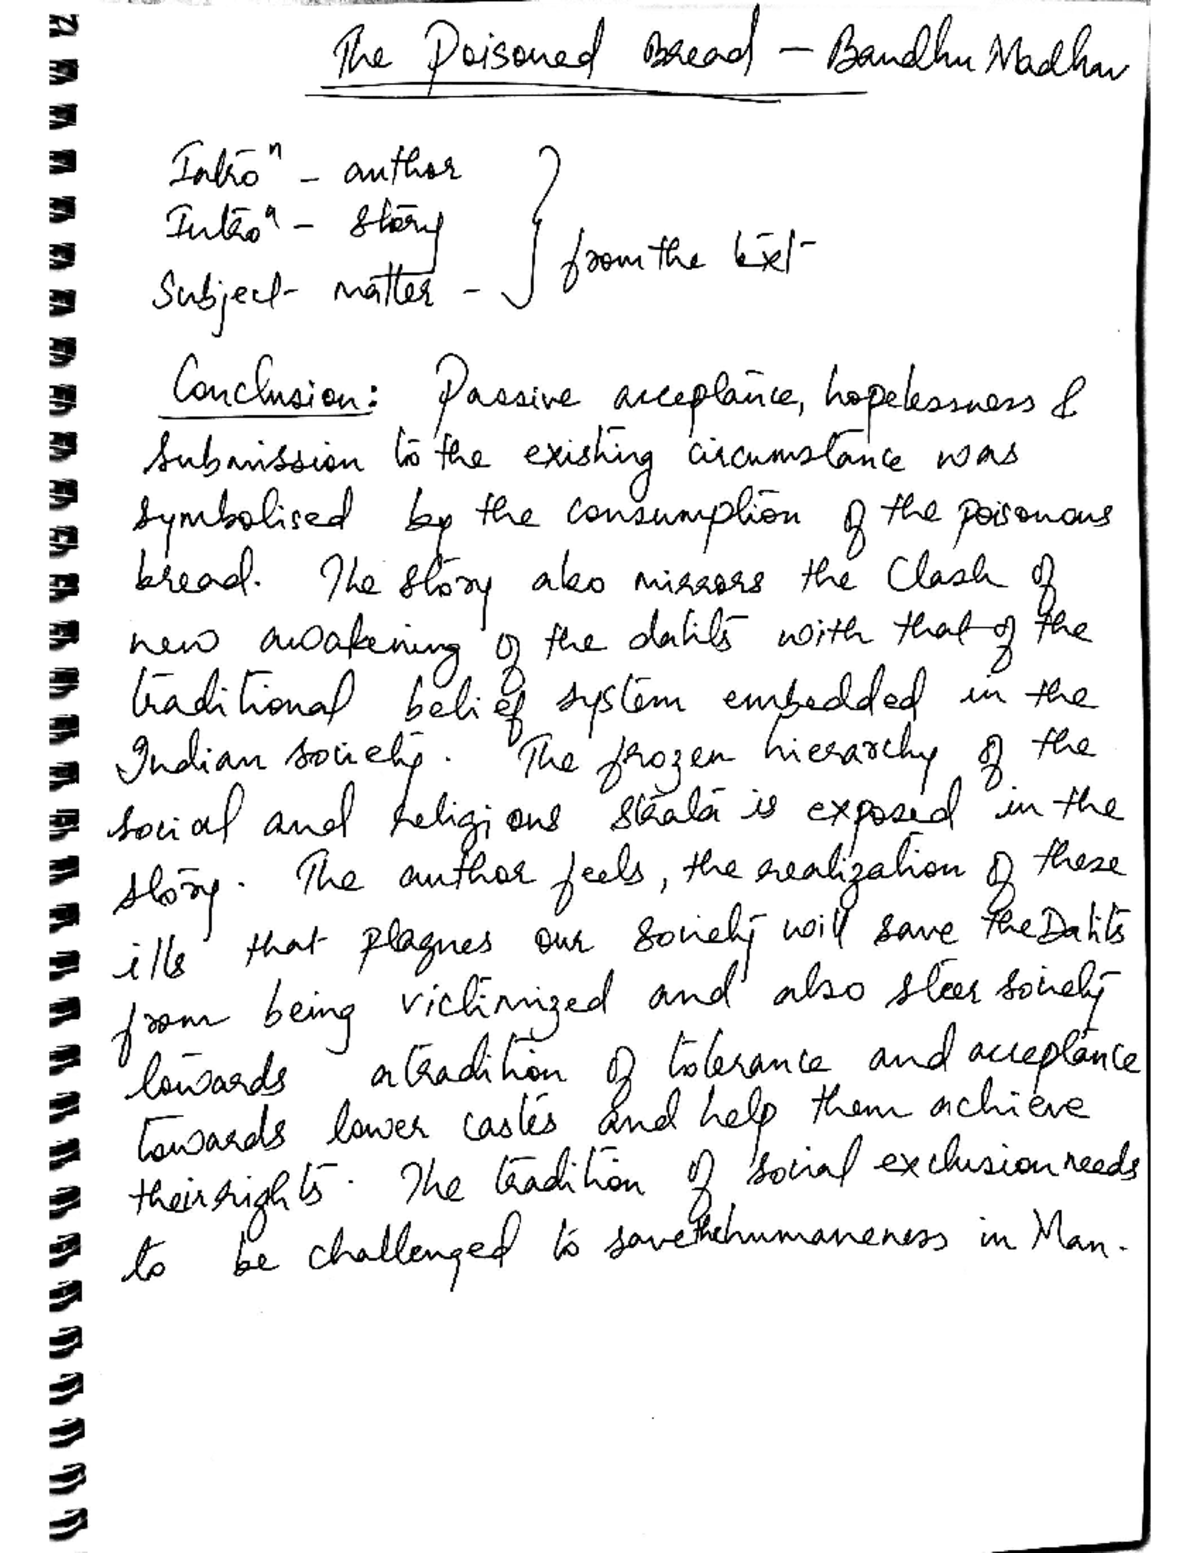 The Poisoned Bread – Bandhu Madhav
Introⁿ – author
Introⁿ – story
Subject matter –
from the text
Conclusion: Passive acceptance, hopelessness &
submission to the existing circumstance was
symbolised by the consumption of the poisonous
bread. The story also mirrors the clash of
new awakening of the dalits with that of the
traditional belief system embedded in the
Indian society. The frozen hierarchy of the
social and religious strata is exposed in the
story. The author feels, the realization of these
ills that plagues our society will save the Dalits
from being victimized and also steer society
towards a tradition of tolerance and acceptance
towards lower castes and help them achieve
their rights. The tradition of social exclusion needs
to be challenged to save the humaneness in Man.